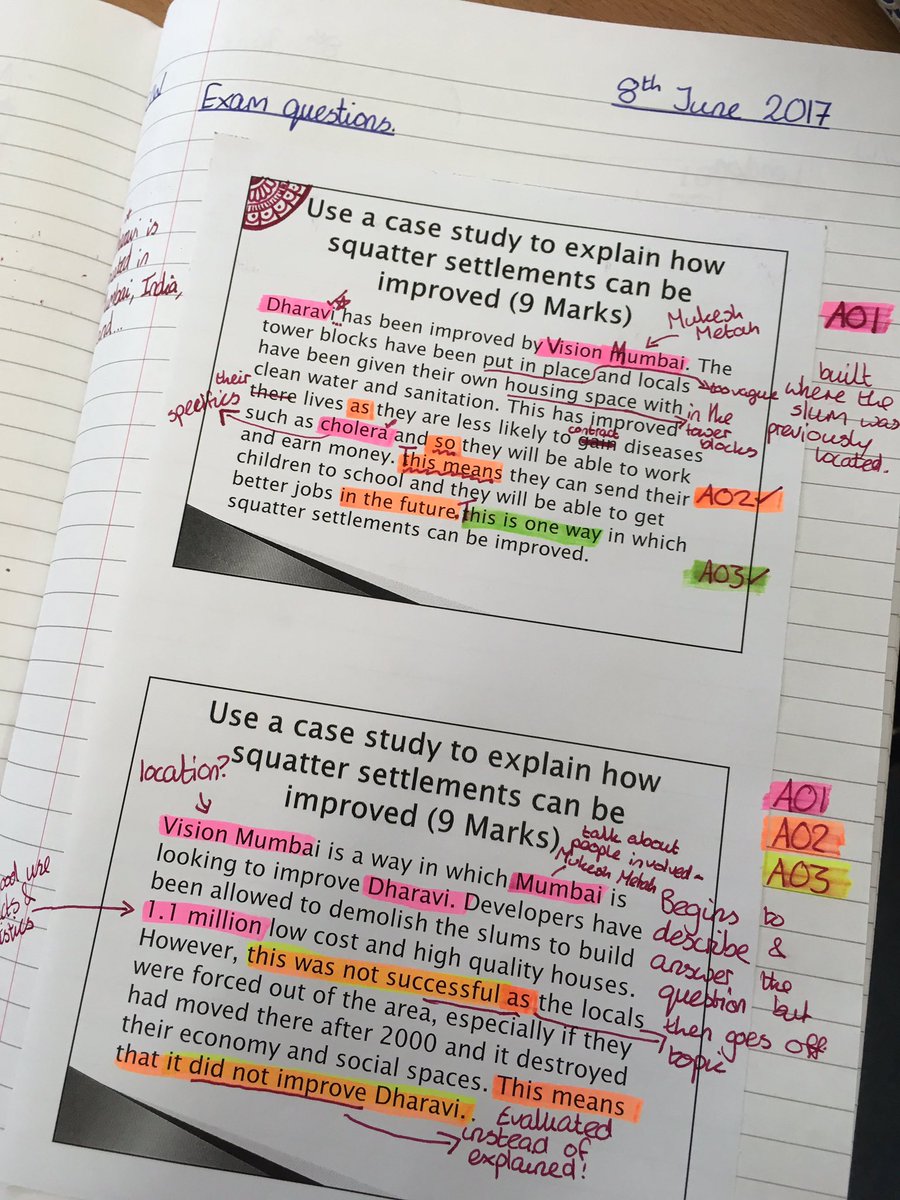 Exam questions.
8th June 2017
Use a case study to explain how
squatter settlements can be
improved (9 Marks)
Mukesh
Metah
AO1
Dharavi has been improved by Vision Mumbai. The
tower blocks have been put in place and locals
have been given their own housing space with
clean water and sanitation. This has improved
there lives as they are less likely to gain diseases
such as cholera and so they will be able to work
and earn money. This means they can send their
children to school and they will be able to get
better jobs in the future. This is one way in which
squatter settlements can be improved.
their
specifics
contract
too vague
in the
tower
blocks
built
where the
slum was
previously
located.
AO2
AO3
is
in
India,
Use a case study to explain how
squatter settlements can be
improved (9 Marks)
location?
talk about
people involved -
Mukesh Metah
AO1
AO2
AO3
Vision Mumbai is a way in which Mumbai is
looking to improve Dharavi. Developers have
been allowed to demolish the slums to build
1.1 million low cost and high quality houses.
However, this was not successful as the locals
were forced out of the area, especially if they
had moved there after 2000 and it destroyed
their economy and social spaces. This means
that it did not improve Dharavi.
Begins to
describe &
answer the
question but
then goes off
topic
use
&
Evaluated
instead of
explained!